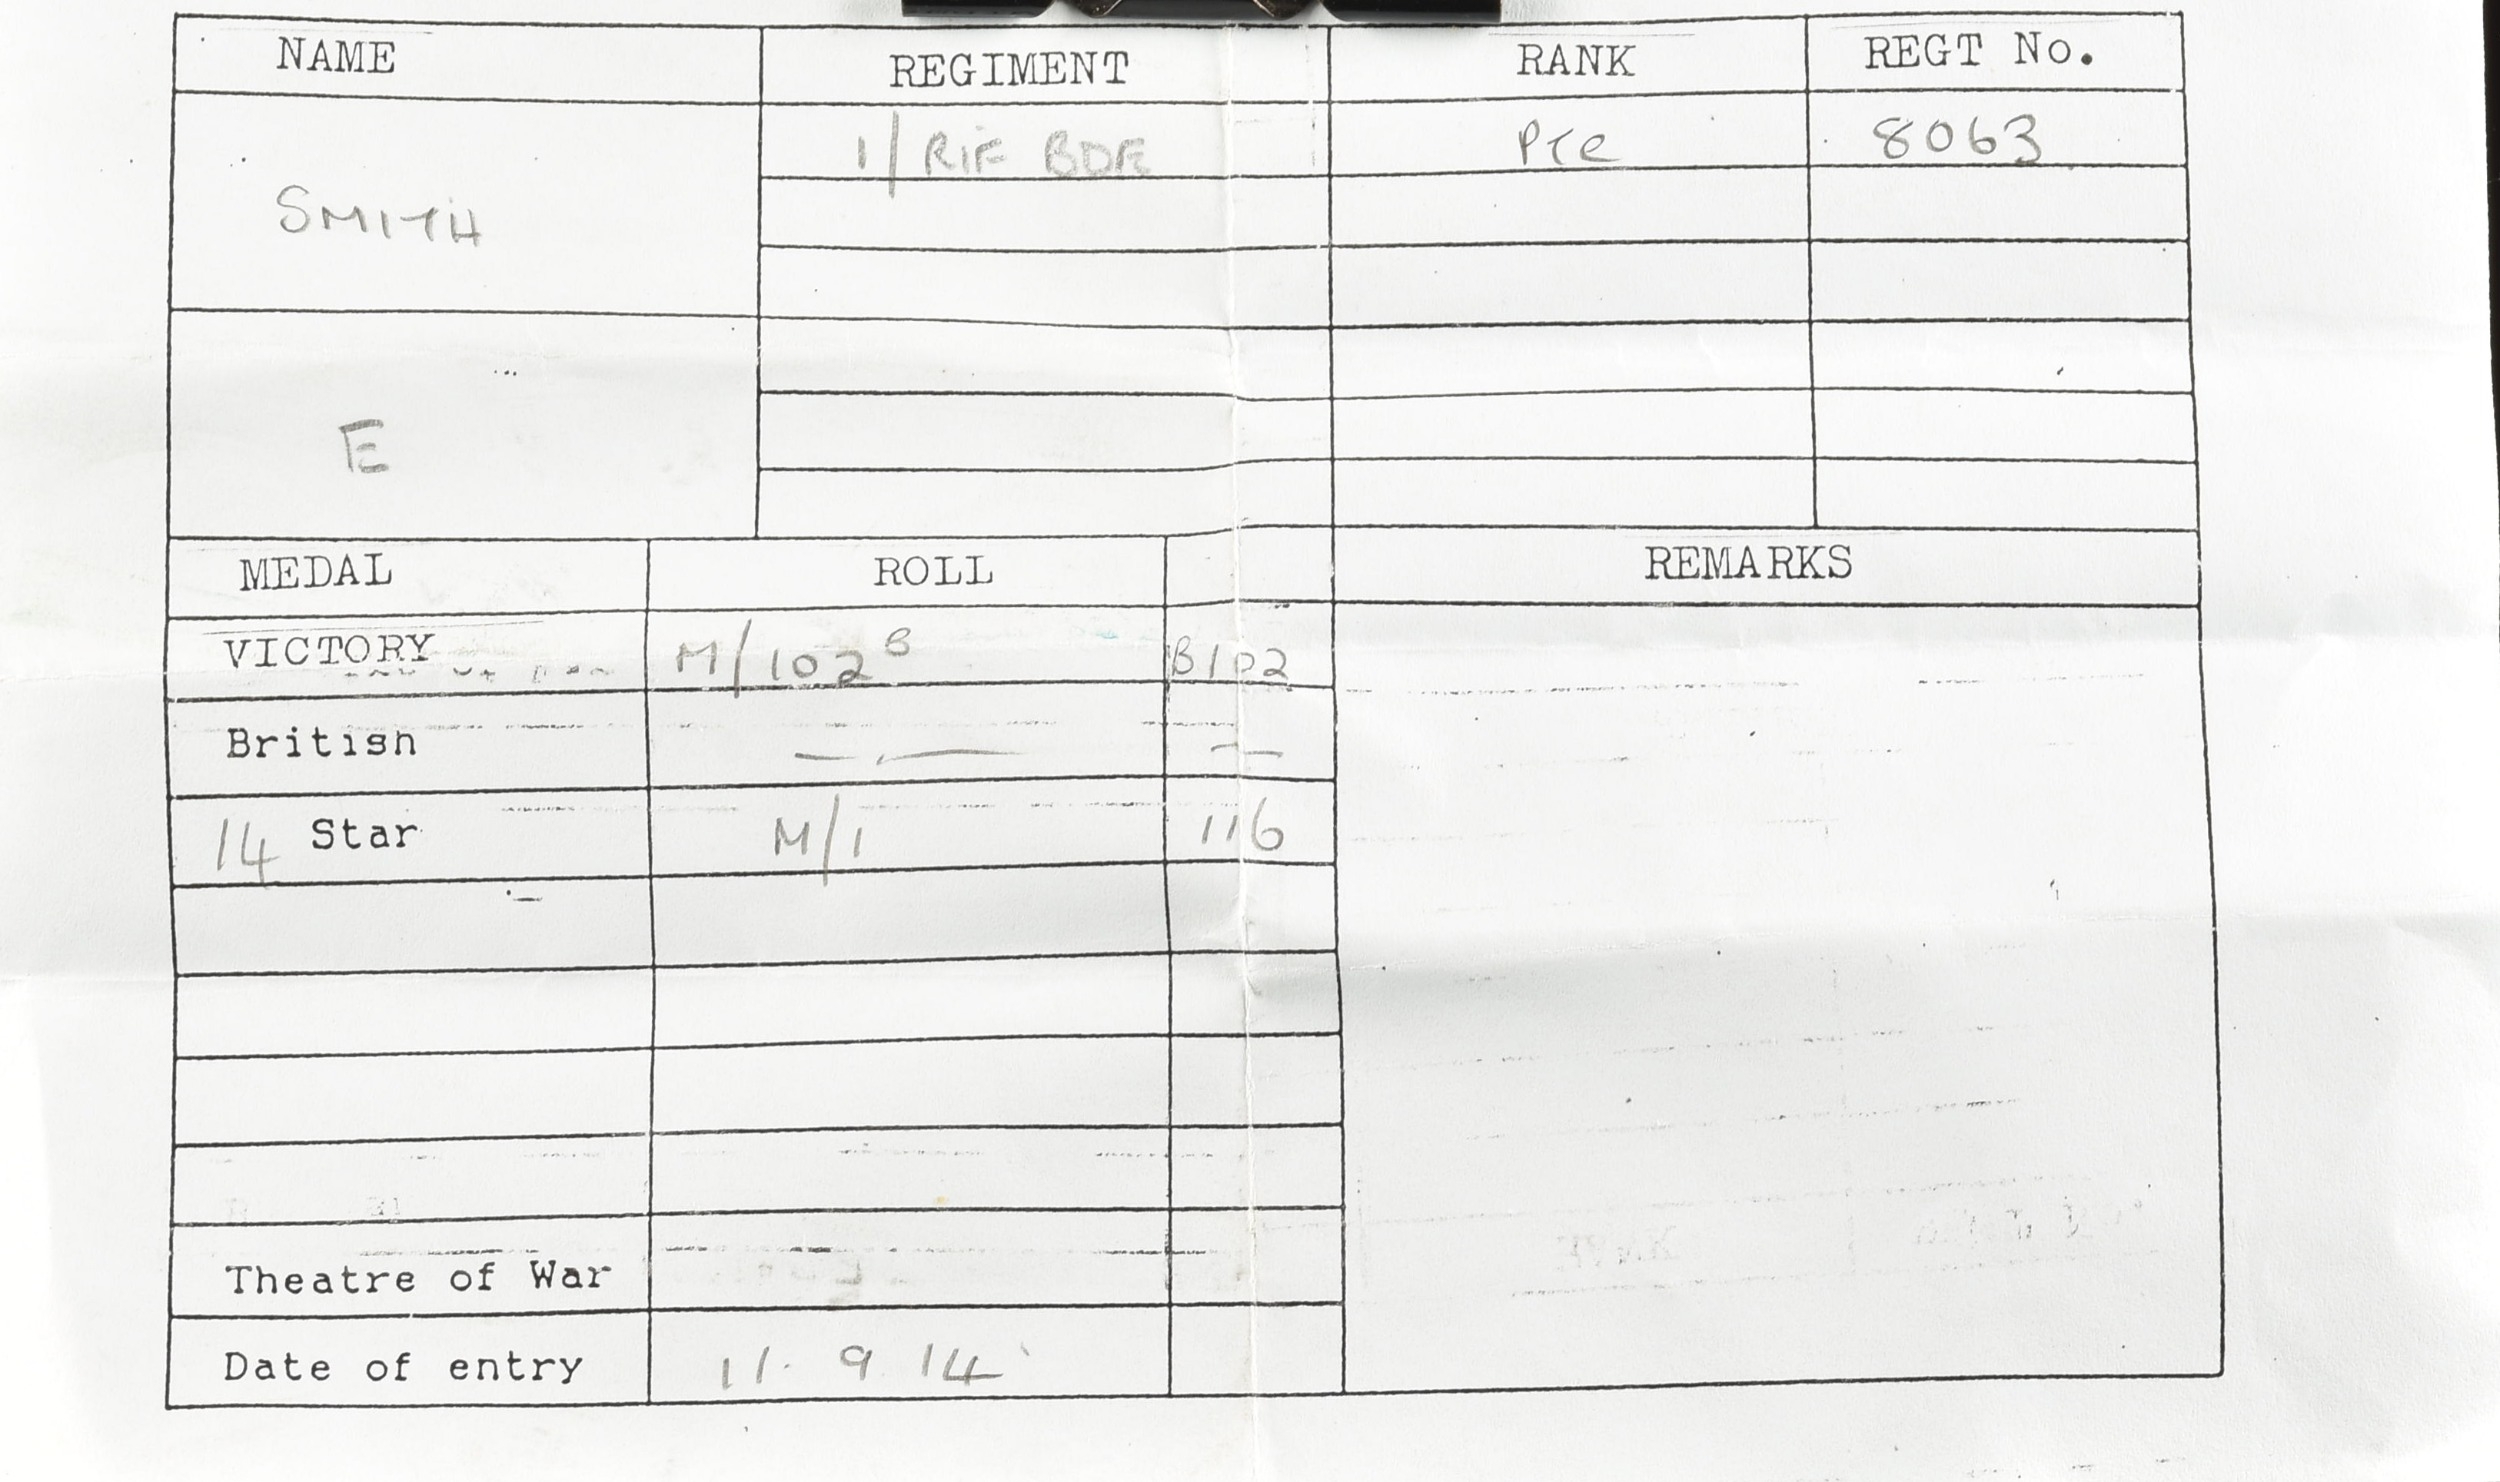 NAME REGIMENT RANK REGT No.
1/RIF BDE Pte 8063
SMITH
E
MEDAL ROLL REMARKS
VICTORY M/102B B102
British — — —
14 Star M/1 116
Theatre of War
Date of entry 11. 9 14